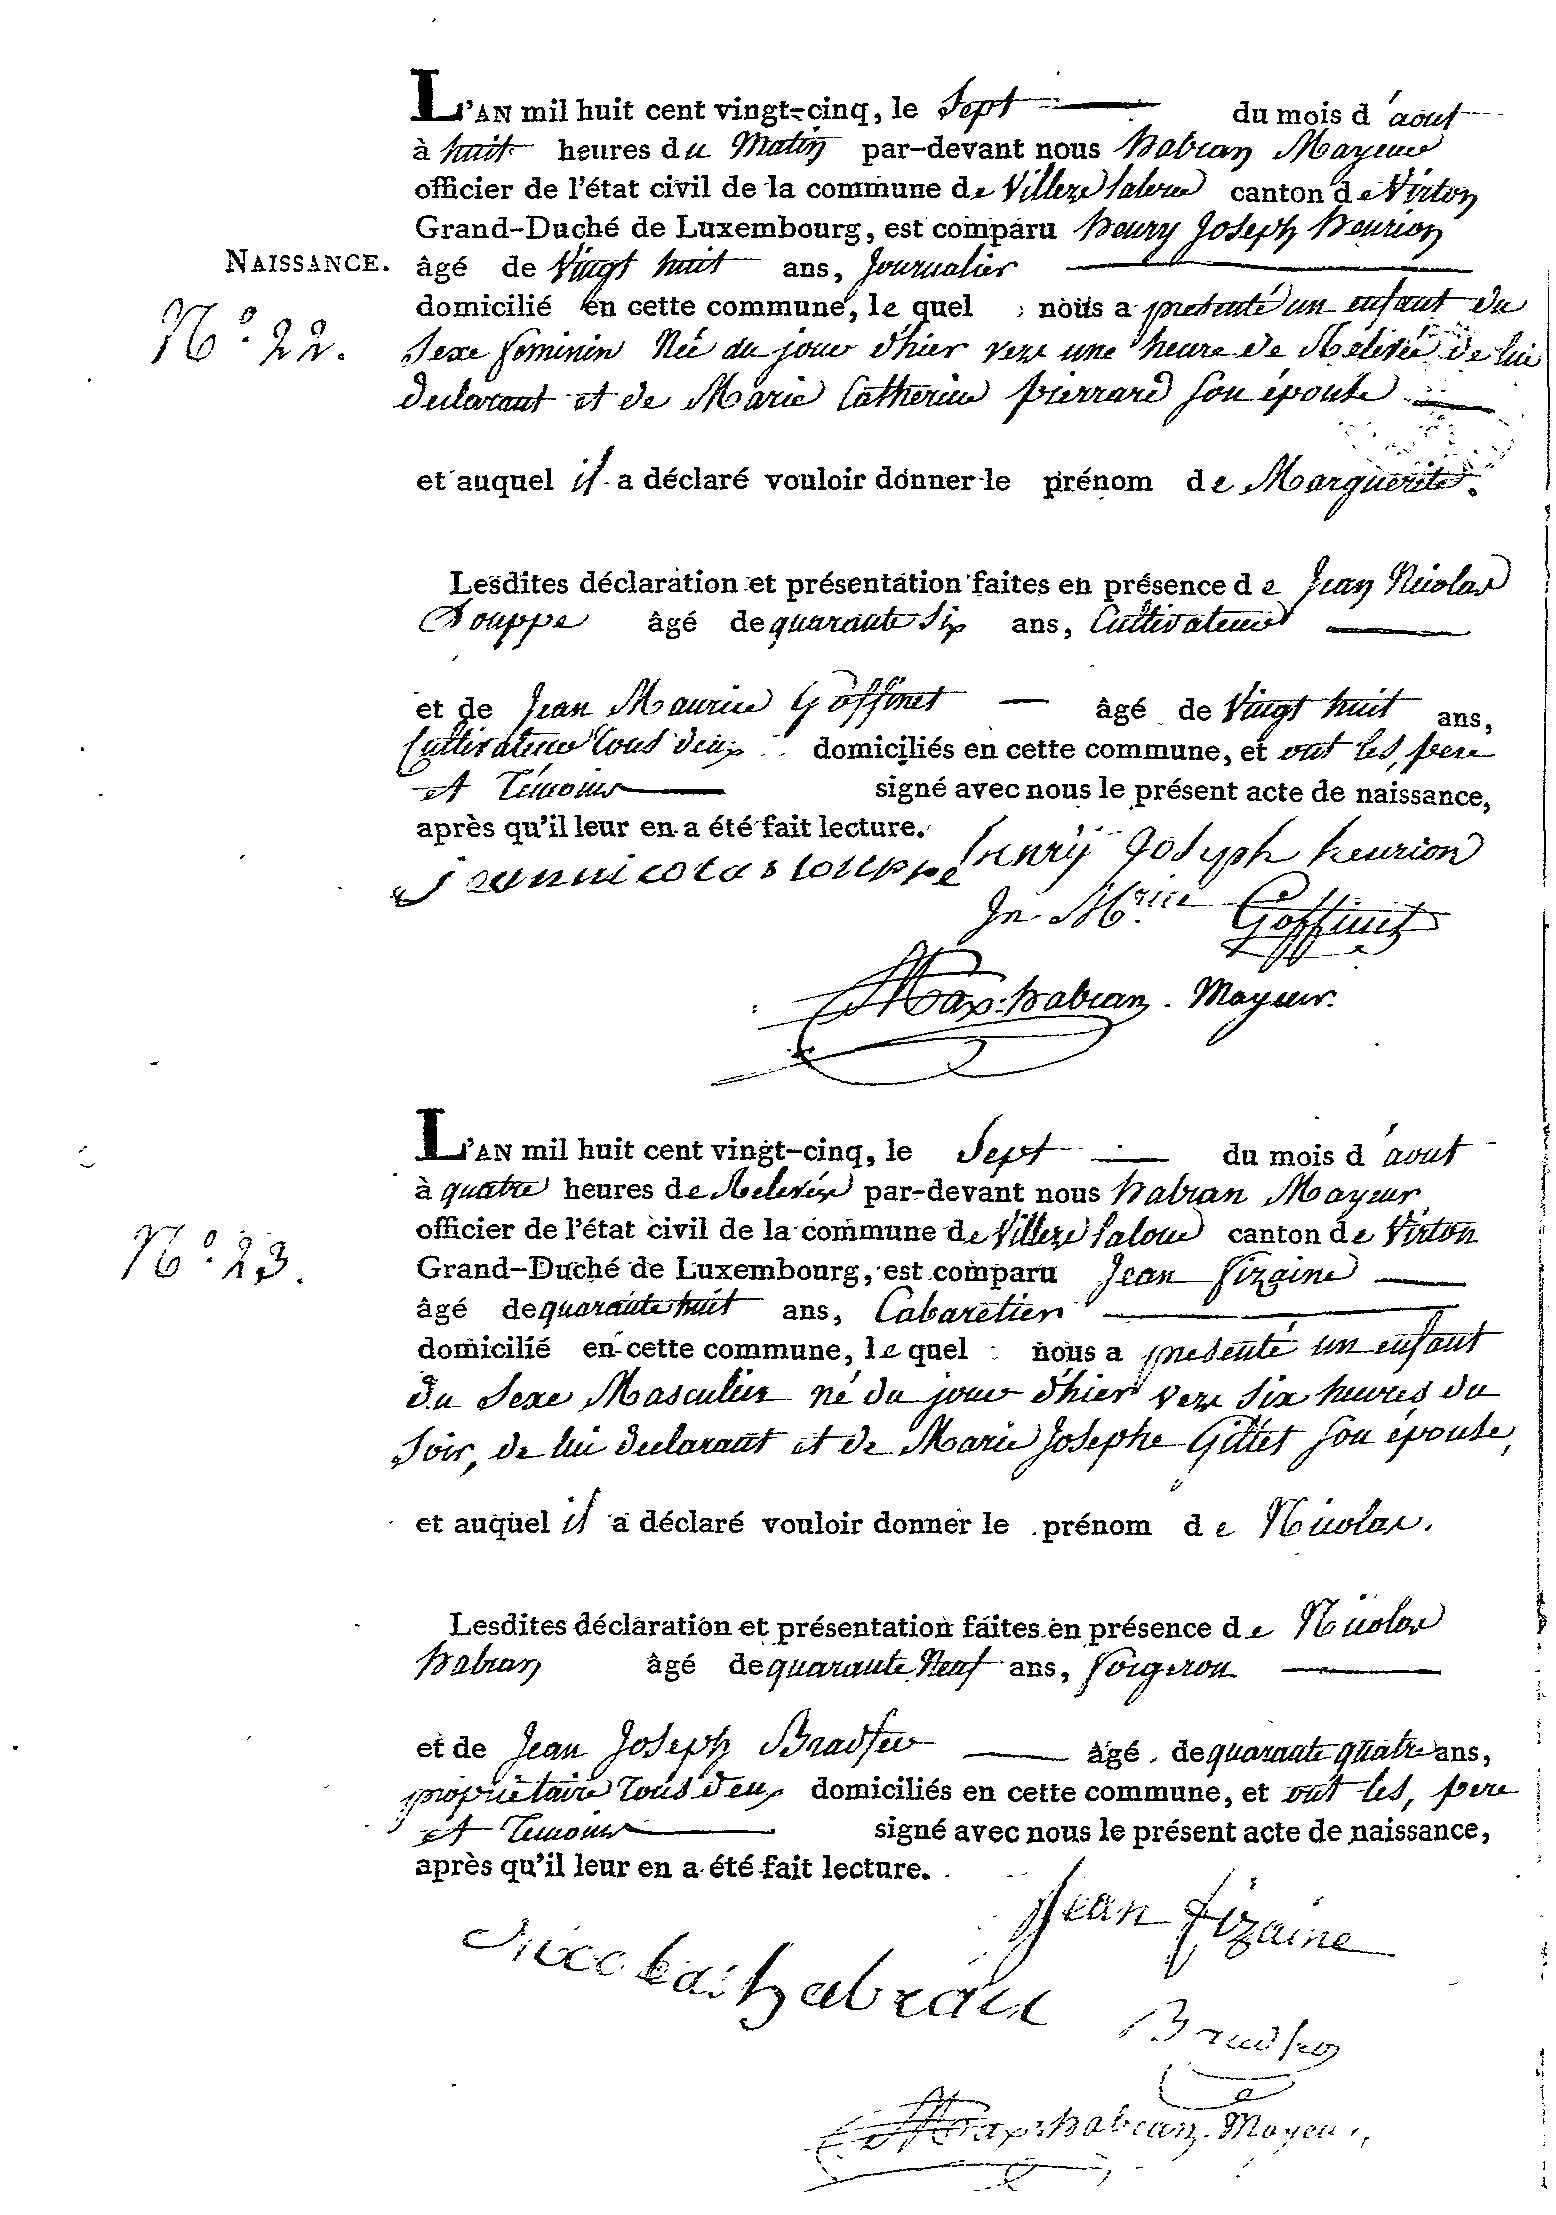 L'AN mil huit cent vingt-cinq, le Sept du mois d'aout
à huit heures du Matin par-devant nous habran Mayeur
officier de l'état civil de la commune de Villers laloue canton de Virton
Grand-Duché de Luxembourg, est comparu henry Joseph henrion
NAISSANCE. âgé de Vingt huit ans, Journalier
domicilié en cette commune, le quel nous a presenté un enfant du
N.° 22. Sexe feminin Née du jour d'hier vers une heure de Rélevée de lui
declarant et de Marie Catherine pierrard son épouse
et auquel il a déclaré vouloir donner le prénom de Marguerite.
Lesdites déclaration et présentation faites en présence de Jean Nicolas
Louppe âgé de quarante Six ans, Cultivateur
et de Jean Maurice Goffinet âgé de Vingt huit ans,
Cultivateur tous deux domiciliés en cette commune, et ont les, pere
et Témoins signé avec nous le présent acte de naissance,
après qu'il leur en a été fait lecture.
henry Joseph henrion
jean nicolas louppe
Jn. M.rice Goffinet
Max. habran. Mayeur.
L'AN mil huit cent vingt-cinq, le Sept du mois d'aout
à quatre heures de Relevée par-devant nous habran Mayeur
officier de l'état civil de la commune de Villers laloue canton de Virton
N.° 23. Grand-Duché de Luxembourg, est comparu Jean fizaine
âgé de quarante huit ans, Cabaretier
domicilié en cette commune, le quel nous a presenté un enfant
du Sexe Masculin né du jour d'hier vers Six heures du
Soir, de lui declarant et de Marie Josephe Gillet son épouse,
et auquel il a déclaré vouloir donner le prénom de Nicolas.
Lesdites déclaration et présentation faites en présence de Nicolas
habran âgé de quarante Neuf ans, forgeron
et de Jean Joseph Bradfer âgé de quarante quatre ans,
propriétaire tous deux domiciliés en cette commune, et ont les, pere
et Temoins signé avec nous le présent acte de naissance,
après qu'il leur en a été fait lecture.
Jean fizaine
Nicolas habran
Bradfer
Max. habran. Mayeur.